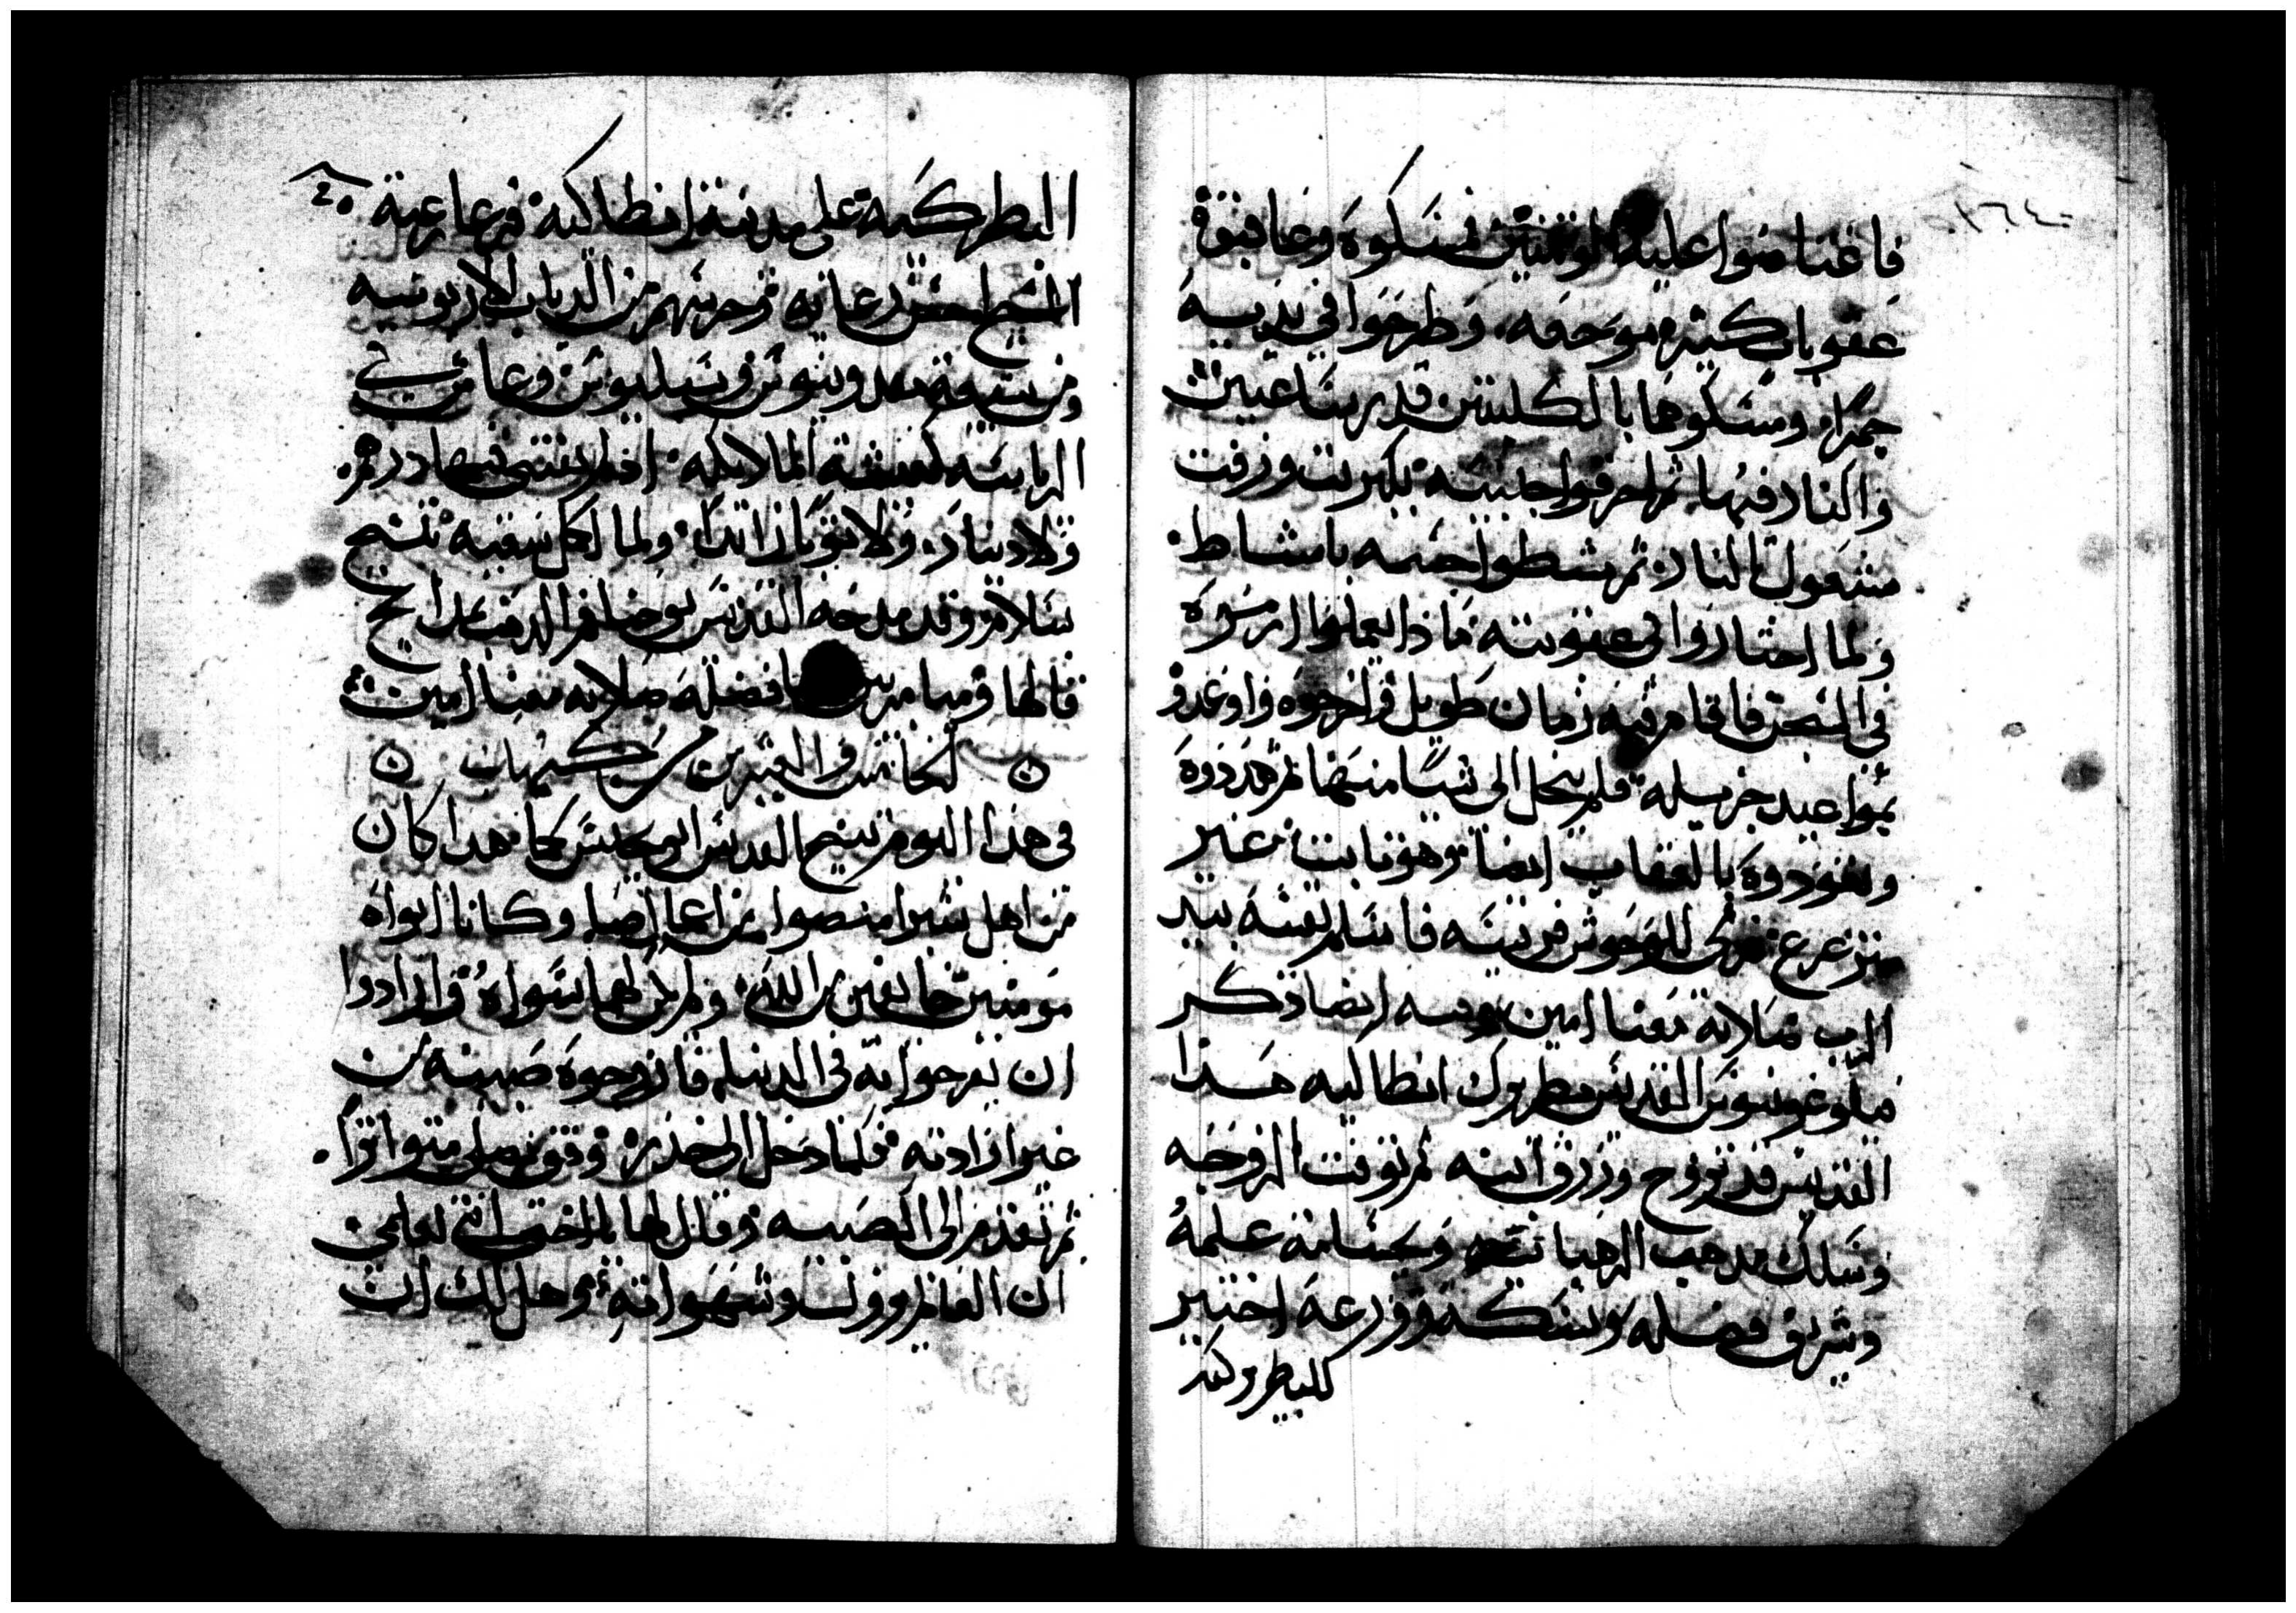 فاغتاضوا عليه الوتنيين فمسكوه وعاقبوه
عقوبات كتيره موجعه. وطرحوا في يديه
جمر. ومسكوها بالكلبتين قدر ساعتين
والنار فيها. ثم احرقوا جنبيه بكبريت وزفت
مشعول بالنار. ثم مشطوا جسمه بامشاط.
ولما احتاروا في عقوبته ماذا يعملوا ارموه
في السجن فاقام فيه زمان طويل واخرجوه واوعدوه
بمواعيد جزيله فلم ينحل الى شيا منها ثم هددوه
بالعقاب ايضا وهو تابت غير
متزعزع للوحوش فاسلم نفسه بيد
الرب صلاته معنا امين وفيه ايضا ذكر
فيلوغونيوس القديس بطريرك انطاكيه هذا
القديس قد تزوج ورزق ابنه ثم توفت الزوجه
وسلك مذهب الرهبانيه علمه
وشرف فضله ونسكه وورعه اختير
للبطركيه
٤٠
البطركيه على مدينة انطاكيه فرعا رعية
المسيح احسن رعايه وحرسهم من الدياب الاريوسيه
ومن شيعة مقدونيوس وسبليوس وعاش في
الرياسه كعيشة الملايكه اذ لم يقتني فيها درهم.
ولا دينار. ولا توبا زايدا. ولما اكمل سعيه تنيح
بسلام وقد مدحه القديس يوحنا فم الدهب مدايح
قالها فضله صلاته معنا امين
التاني والعشرين من كيهك
في هذا اليوم تنيح القديس ابو يحنس كاما هذا كان
من اهل شبرا منصوا من اعمال صا وكانا ابواه
مومنين خايفين الله ولم يكن لهما سواه وارادوا
ان يفرحوا به في الدنيا. فازوجوه صبيه من
غير ارادته فلما دخل الى خذره وقف يصلي متواترا.
ثم تقدم الى الصبيه وقال لها يا اختي انتي تعلمي
ان العالم يزول وشهواته وهل لك ان